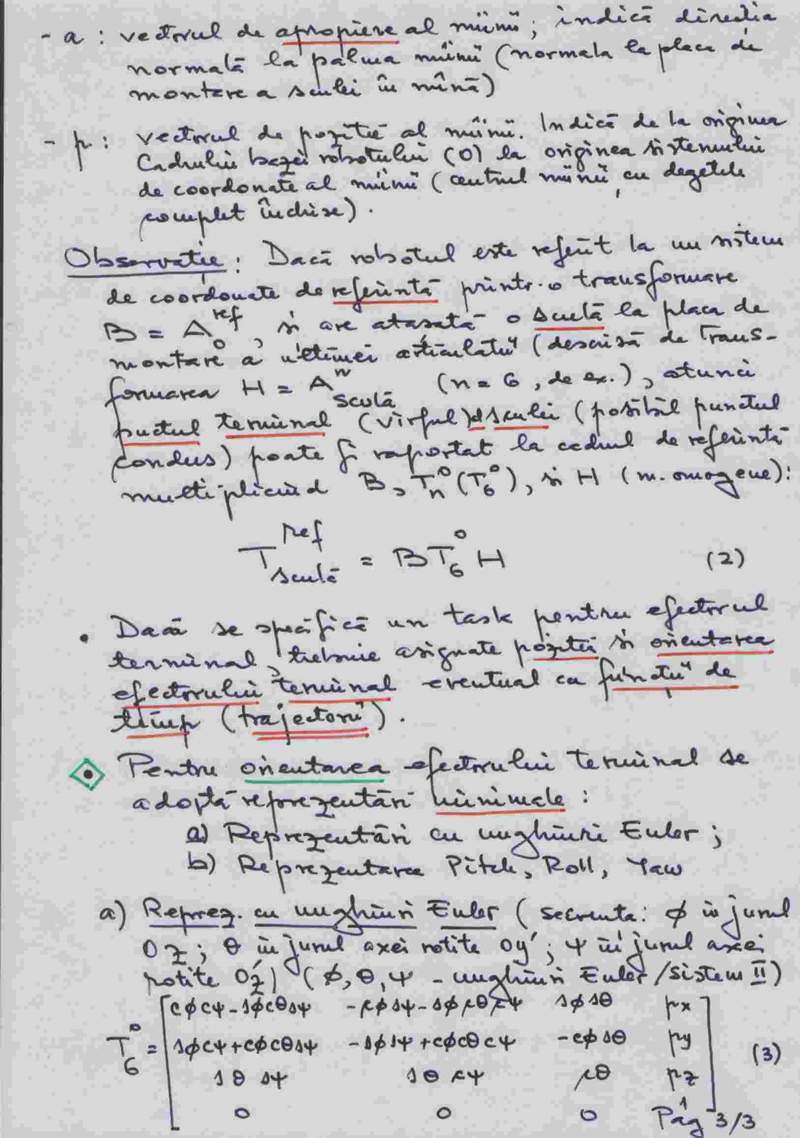 - a : vectorul de apropiere al mîinii; indică direcția
normală la palma mîinii (normala la placa de
montare a sculei în mînă)
- p : vectorul de poziție al mîinii. Indică de la originea
Cadrului bazei robotului (0) la originea sistemului
de coordonate al mîinii (centrul mîinii, cu degetele
complet închise).
Observație: Dacă robotul este referit la un sistem
de coordonate de referință printr-o transformare
B = A₀^ref, și are atașată o sculă la placa de
montare a ultimei articulații (descrisă de Trans-
formarea H = A^n_sculă (n = 6, de ex.), atunci
puctul terminal (vîrful) al sculei (posibil punctul
condus) poate fi raportat la cadrul de referință
multiplicînd B, T_n^0 (T_6^0), și H (m. omogene):
T_sculă^ref = B T_6^0 H (2)
• Dacă se specifică un task pentru efectorul
terminal, trebuie asignate poziții și orientarea
efectorului terminal eventual ca funcții de
timp (traiectorii).
• Pentru orientarea efectorului terminal se
adoptă reprezentări minimale :
a) Reprezentări cu unghiuri Euler;
b) Reprezentarea Pitch, Roll, Yaw
a) Reprez. cu unghiuri Euler (secvența: φ în jurul
Oz; θ în jurul axei rotite Oy'; ψ în jurul axei
rotite Oz') (φ, θ, ψ - unghiuri Euler/sistem II)
cφcψ-sφcθsψ -cφsψ-sφcθcψ sφsθ px
T_6^0 = sφcψ+cφcθsψ -sφsψ+cφcθcψ -cφsθ py (3)
sθ sψ sθ cψ cθ pz
0 0 0 1
Pag 3/3